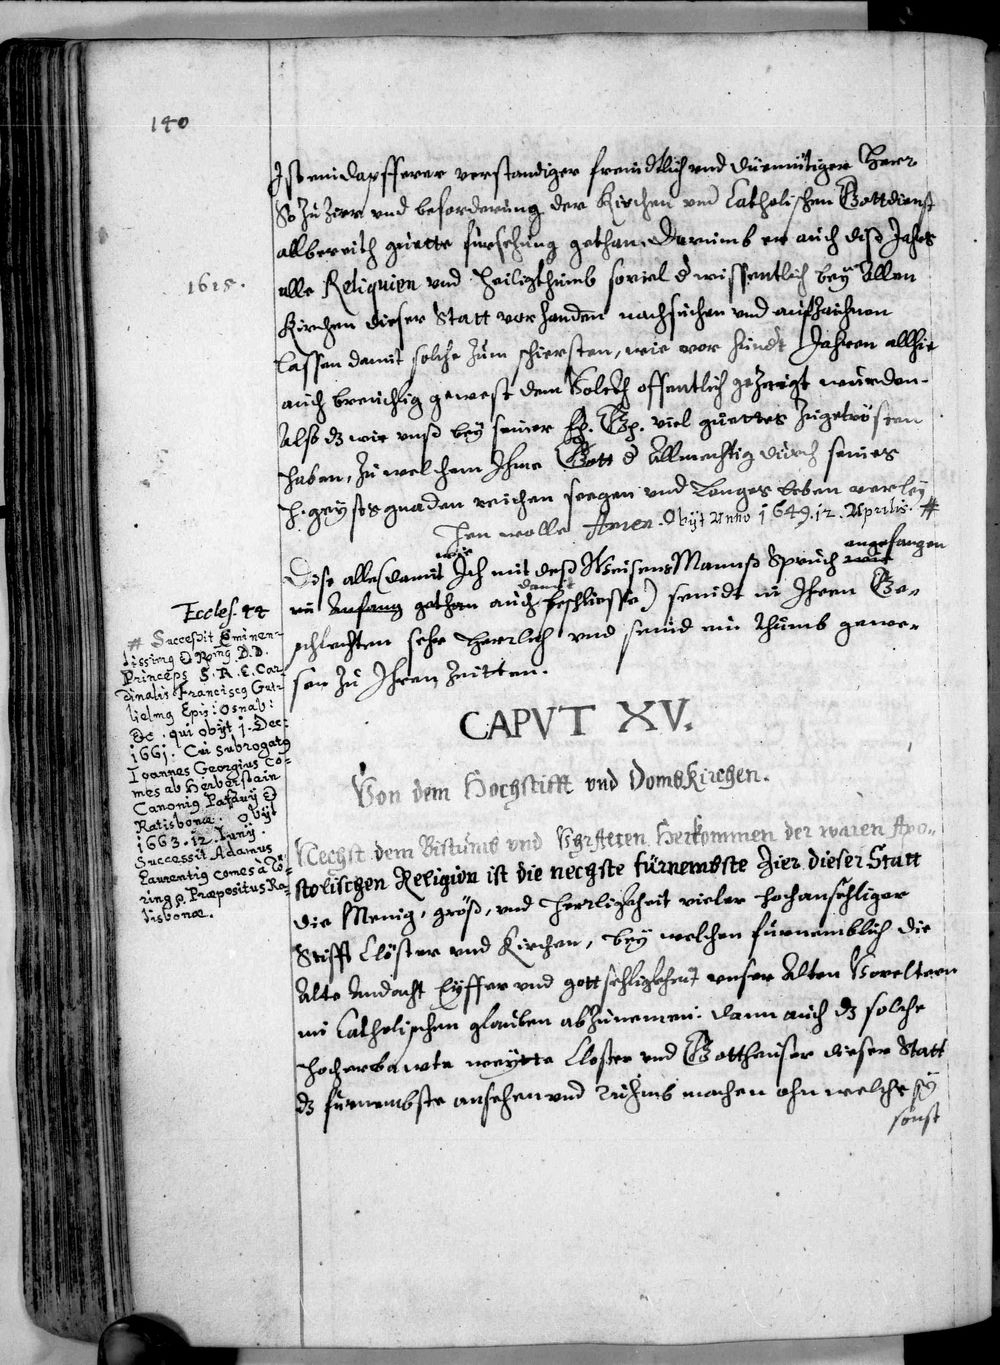 140
Ist ein dapfferer verstandiger freindtlich und düemütiger Herr
So zu Zierr und beforderung der Kirchen und Catholischen Gottdienst
allbereith guette fürsehung gethan. Darumb er auch diß Jahrs
1615.
alle Reliquien und Heiligthumb soviel d wissentlich bey Allen
Kirchen dieser Statt vorhanden nachsuchen und auffzaichnen
lassen damit solche zum schiersten, wie vor Jahren allhie
auch breuchlig gewest dem Volckh offentlich gezeigt wurden.
Also dz wir unß bey seiner viel guettes zugetrösten
haben, zu welchem Ihme Gott d Allmechtig durch seines
H. geysts gnadenreichen seegen und Langes Leben verley
hen wolle Amen. Obijt Anno 1649. 12. Aprilis. #
Dise alle (damit wie Ich mit deß Weisens Mannß Spruch angefangen
ein Anfang gethan auch damit beschliesse) seindt in Ihren Ge-
schlechten sehr Herrlich und seind ein Rhumb gewe-
sen zu Ihren Zeitten.
Eccles. 44
# Successit Eminen-
tissimg & Rmg. D.D.
Princeps S. R. E. Car-
dinalis Franciscg Guil-
lielmg Epis: Osnab:
&c. qui obijt 1. Dec:
1661. Cui subrogatg
Ioannes Georgius Co-
mes ab Herberstain
Canonig Patavij &
Ratisbonæ. Obijt
1663. 12. Iunij.
Successit Adamus
Laurentig comes à Tö-
ring Præpositus Ra-
tisbonæ.
CAPVT XV.
Von dem Hochstifft und Dombkirchen.
Nechst dem Bistumb und Uhralten Herkommen der waren Apo-
stolischen Religion ist die nechste fürnembste Zier dieser Statt
die Menig, größ, und Herrligkheit vieler Hochansehliger
Stifft Clöster und Kirchen, bey welchen fürnemblich die
Alte Andacht Eyffer und gottsehligkheit unser Alten Voreltern
im Catholischen glauben abzunemen. Dann auch dz solche
Hocherbawte weytte Closter und Gotthauser dieser Statt
dz fürnembste ansehen und Ruhmb machen ohn welche sy
sonst